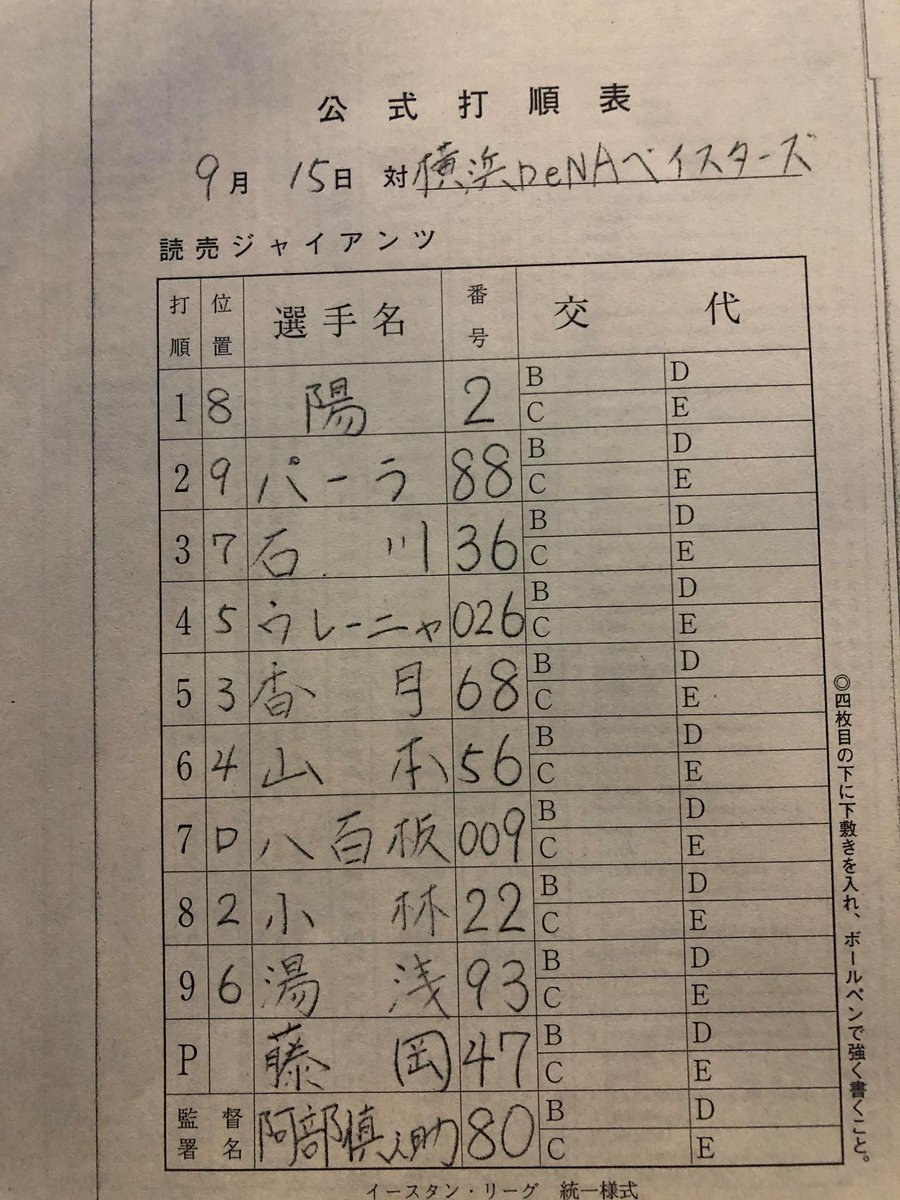 公式打順表
9月 15日 対 横浜DeNAベイスターズ
読売ジャイアンツ
打順 位置 選手名 番号 交代
1 8 陽 2 B D C E
2 9 パーラ 88 B D C E
3 7 石川 36 B D C E
4 5 ウレーニャ 026 B D C E
5 3 香月 68 B D C E
6 4 山本 56 B D C E
7 D 八百板 009 B D C E
8 2 小林 22 B D C E
9 6 湯浅 93 B D C E
P 藤岡 47 B D C E
監督署名 阿部慎之助 80 B D C E
◎四枚目の下に下敷きを入れ、ボールペンで強く書くこと。
イースタン・リーグ 統一様式